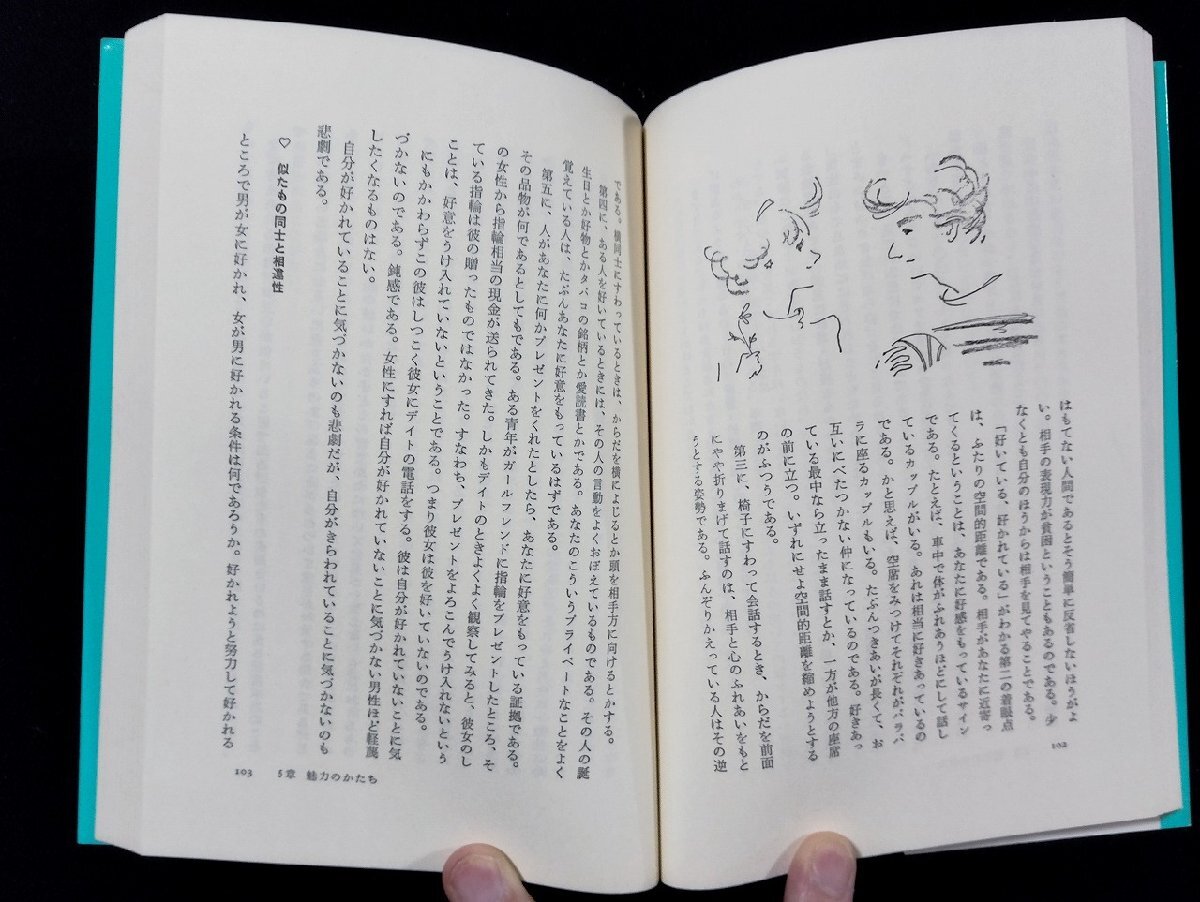 はもてない人間であるとそう簡単に反省しないほうがよ
い。相手の表現力が貧困ということもあるのである。少
なくとも自分のほうからは相手を見てやることである。
「好いている、好かれている」がわかる第二の着眼点
は、ふたりの空間的距離である。相手があなたに近寄っ
てくるということは、あなたに好感をもっているサイン
である。たとえば、車中で体がふれあうほどにして話し
ているカップルがいる。あれは相当に好きあっているの
である。かと思えば、空席をみつけてそれぞれがバラバ
ラに座るカップルもいる。たぶんつきあいが長くて、お
互いにべたつかない仲になっているのである。好きあっ
ている最中なら立ったまま話すとか、一方が他方の座席
の前に立つ。いずれにせよ空間的距離を縮めようとする
のがふつうである。
第三に、椅子にすわって会話するとき、からだを前面
にやや折りまげて話すのは、相手と心のふれあいをもと
うとする姿勢である。ふんぞりかえっている人はその逆
102
である。横同士にすわっているときは、からだを横によじるとか頭を相手方に向けるとかする。
第四に、ある人を好いているときには、その人の言動をよくおぼえているものである。その人の誕
生日とか好物とかタバコの銘柄とか愛読書とかである。あなたのこういうプライベートなことをよく
覚えている人は、たぶんあなたに好意をもっているはずである。
第五に、人があなたに何かプレゼントをくれたとしたら、あなたに好意をもっている証拠である。
その品物が何であるとしてもである。ある青年がガールフレンドに指輪をプレゼントしたところ、そ
の女性から指輪相当の現金が送られてきた。しかもデイトのときよくよく観察してみると、彼女のし
ている指輪は彼の贈ったものではなかった。すなわち、プレゼントをよろこんでうけ入れないという
ことは、好意をうけ入れていないということである。つまり彼女は彼を好いていないのである。
にもかかわらずこの彼はしつこく彼女にデイトの電話をする。彼は自分が好かれていないことに気
づかないのである。鈍感である。女性にすれば自分が好かれていないことに気づかない男性ほど軽蔑
したくなるものはない。
自分が好かれていることに気づかないのも悲劇だが、自分がきらわれていることに気づかないのも
悲劇である。
♡ 似たもの同士と相違性
ところで男が女に好かれ、女が男に好かれる条件は何であろうか。好かれようと努力して好かれる
103 5章 魅力のかたち